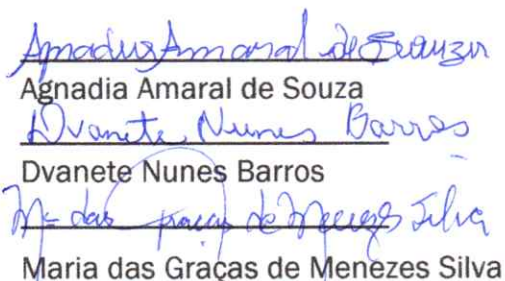 Amaral de Souza
Agnadia Amaral de Souza
Dvanete Nunes Barros
Dvanete Nunes Barros
Mª das Graças de Menezes Silva
Maria das Graças de Menezes Silva